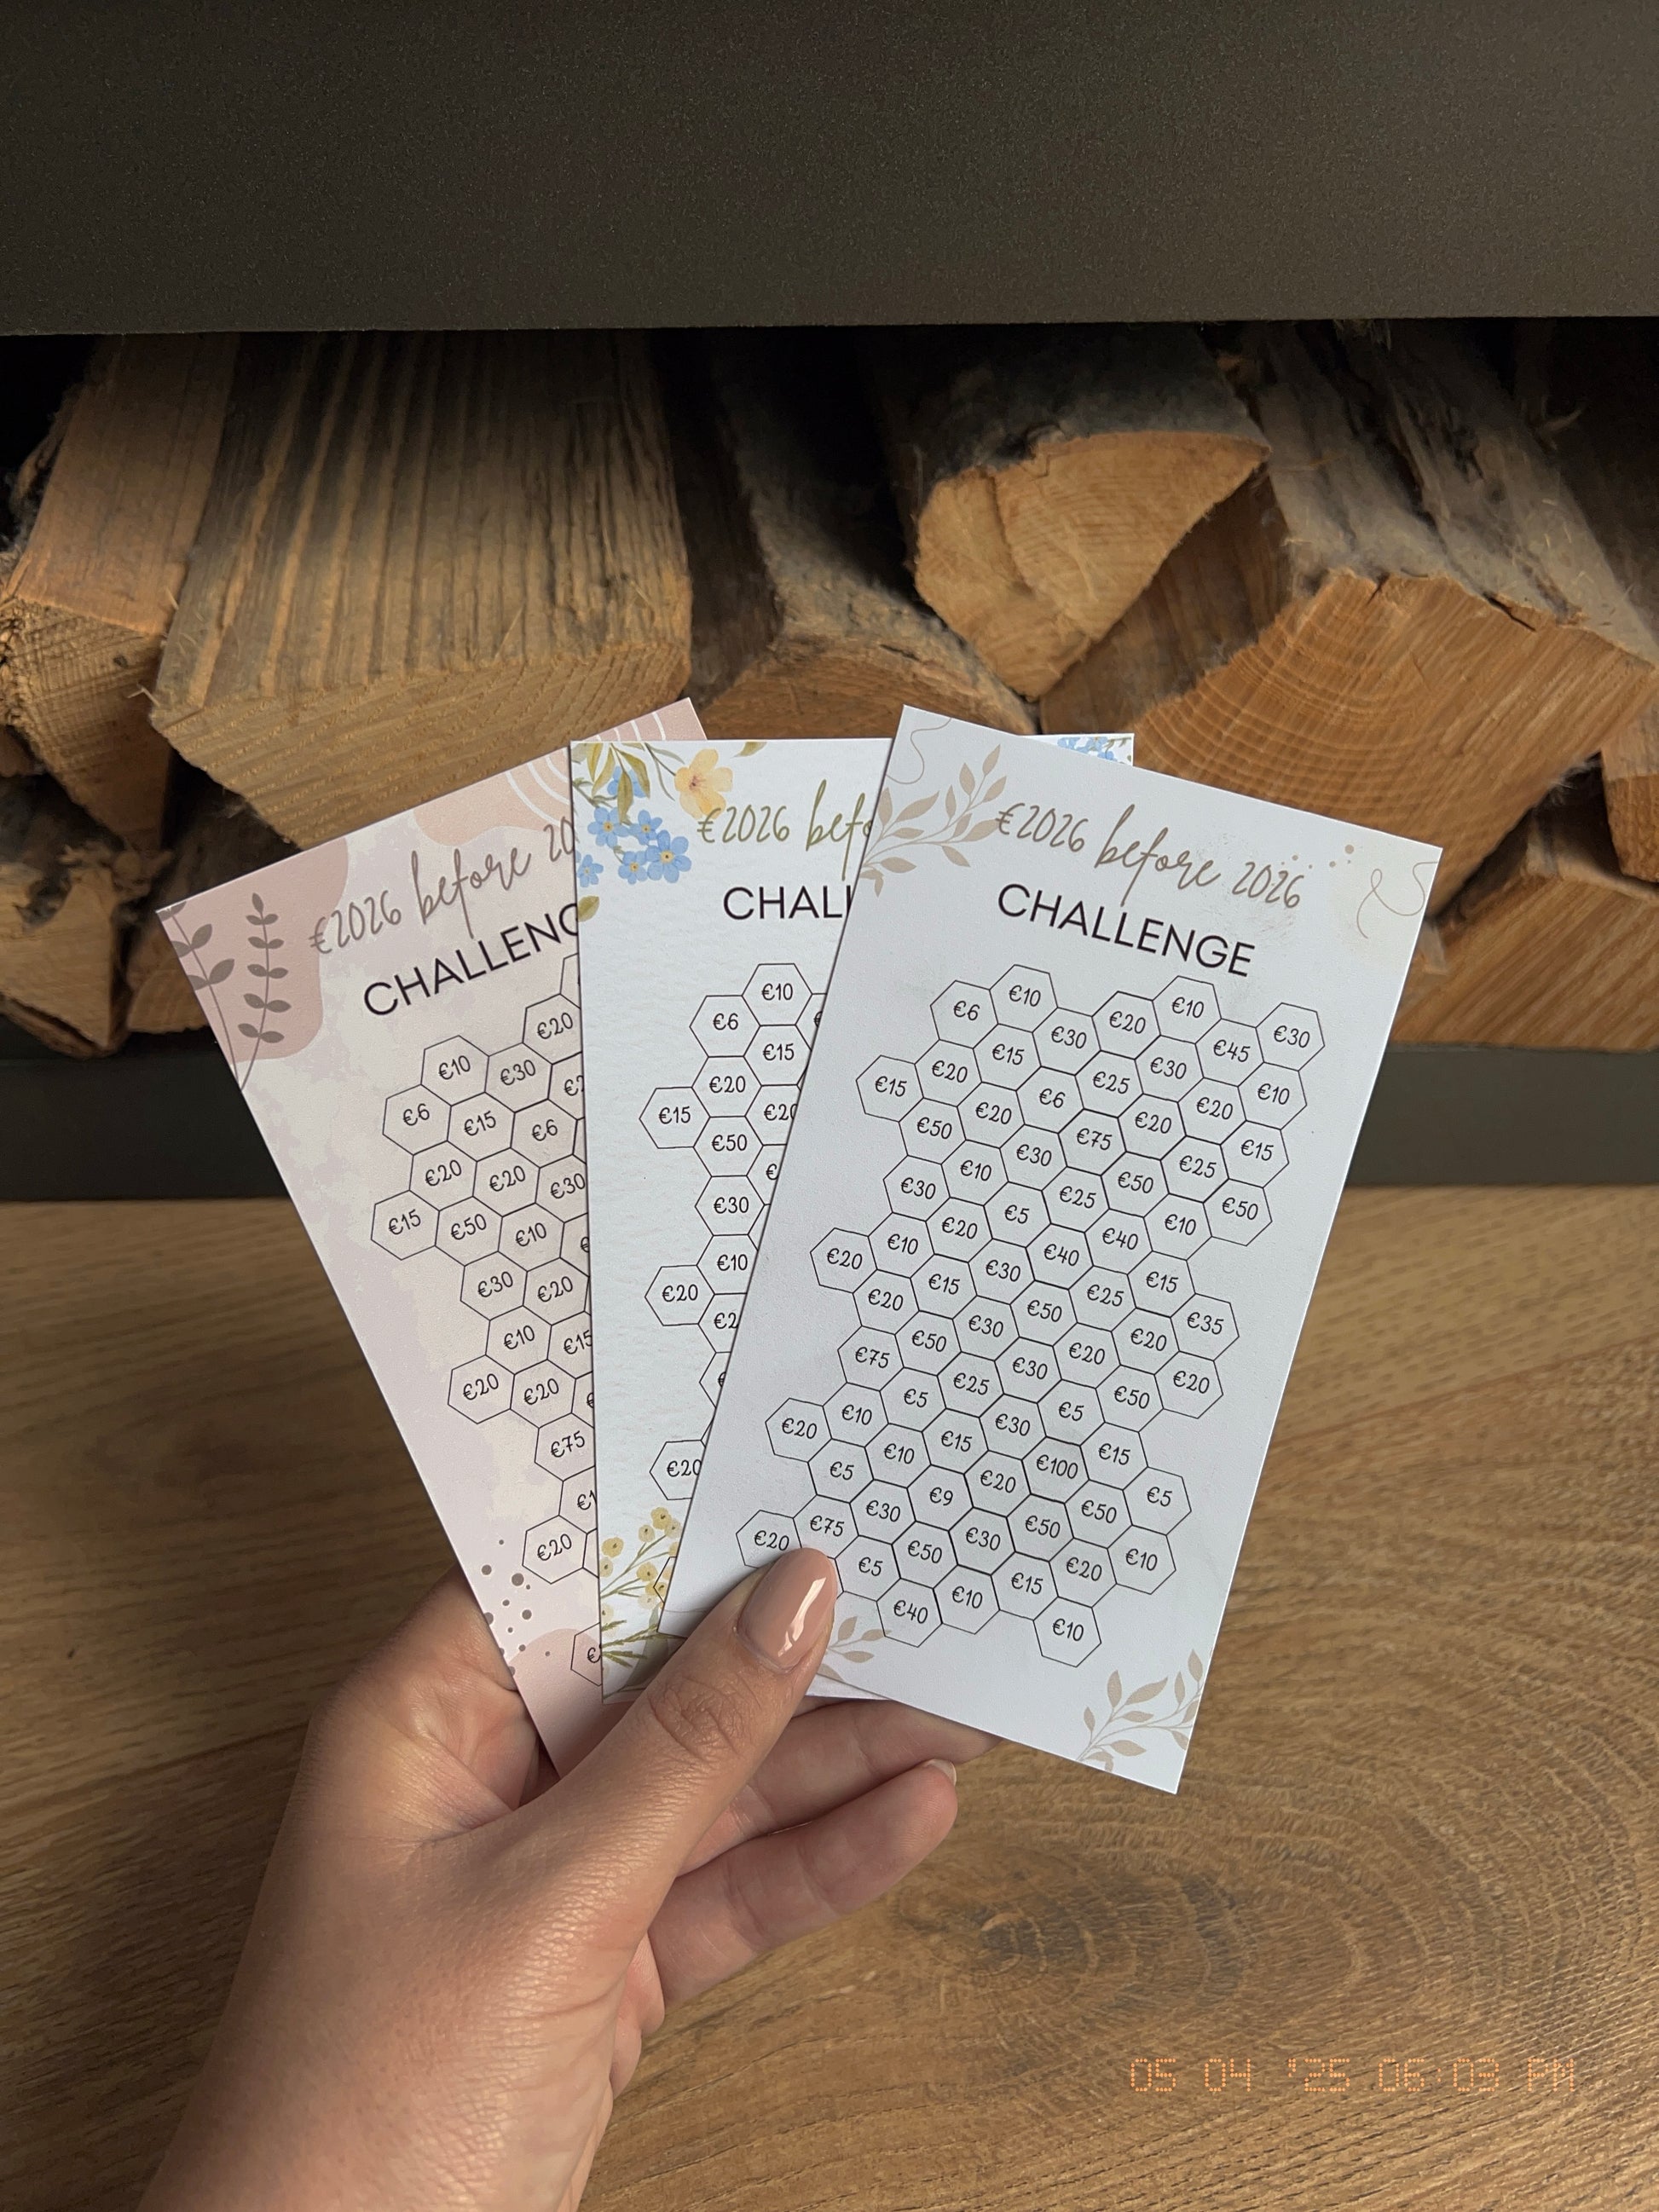 €2026 before 20
CHALLENG
€20
€10 €30
€6 €15 €6
€20 €20 €30
€15 €50 €10
€30 €20
€10 €15
€20 €20
€75
€20
€2026 befo
CHALL
€10
€6
€15
€20
€15 €20
€50
€30
€10
€20
€20
€2026 before 2026
CHALLENGE
€10 €30
€10 €20 €45
€6 €30 €30 €10
€15 €25 €20
€20 €6 €20 €15
€15 €20 €75 €25
€50 €30 €50 €50
€10 €25 €10
€30 €5 €40
€20 €40 €15
€10 €30 €25 €35
€20 €15 €50 €20
€20 €30 €20 €20
€50 €30 €50
€75 €25 €5
€5 €30 €15
€10 €15 €100 €5
€20 €10 €20 €50
€5 €9 €50 €10
€30 €30 €20
€75 €50 €15
€20 €5 €10 €10
€40
05 04 '25 06:03 PM